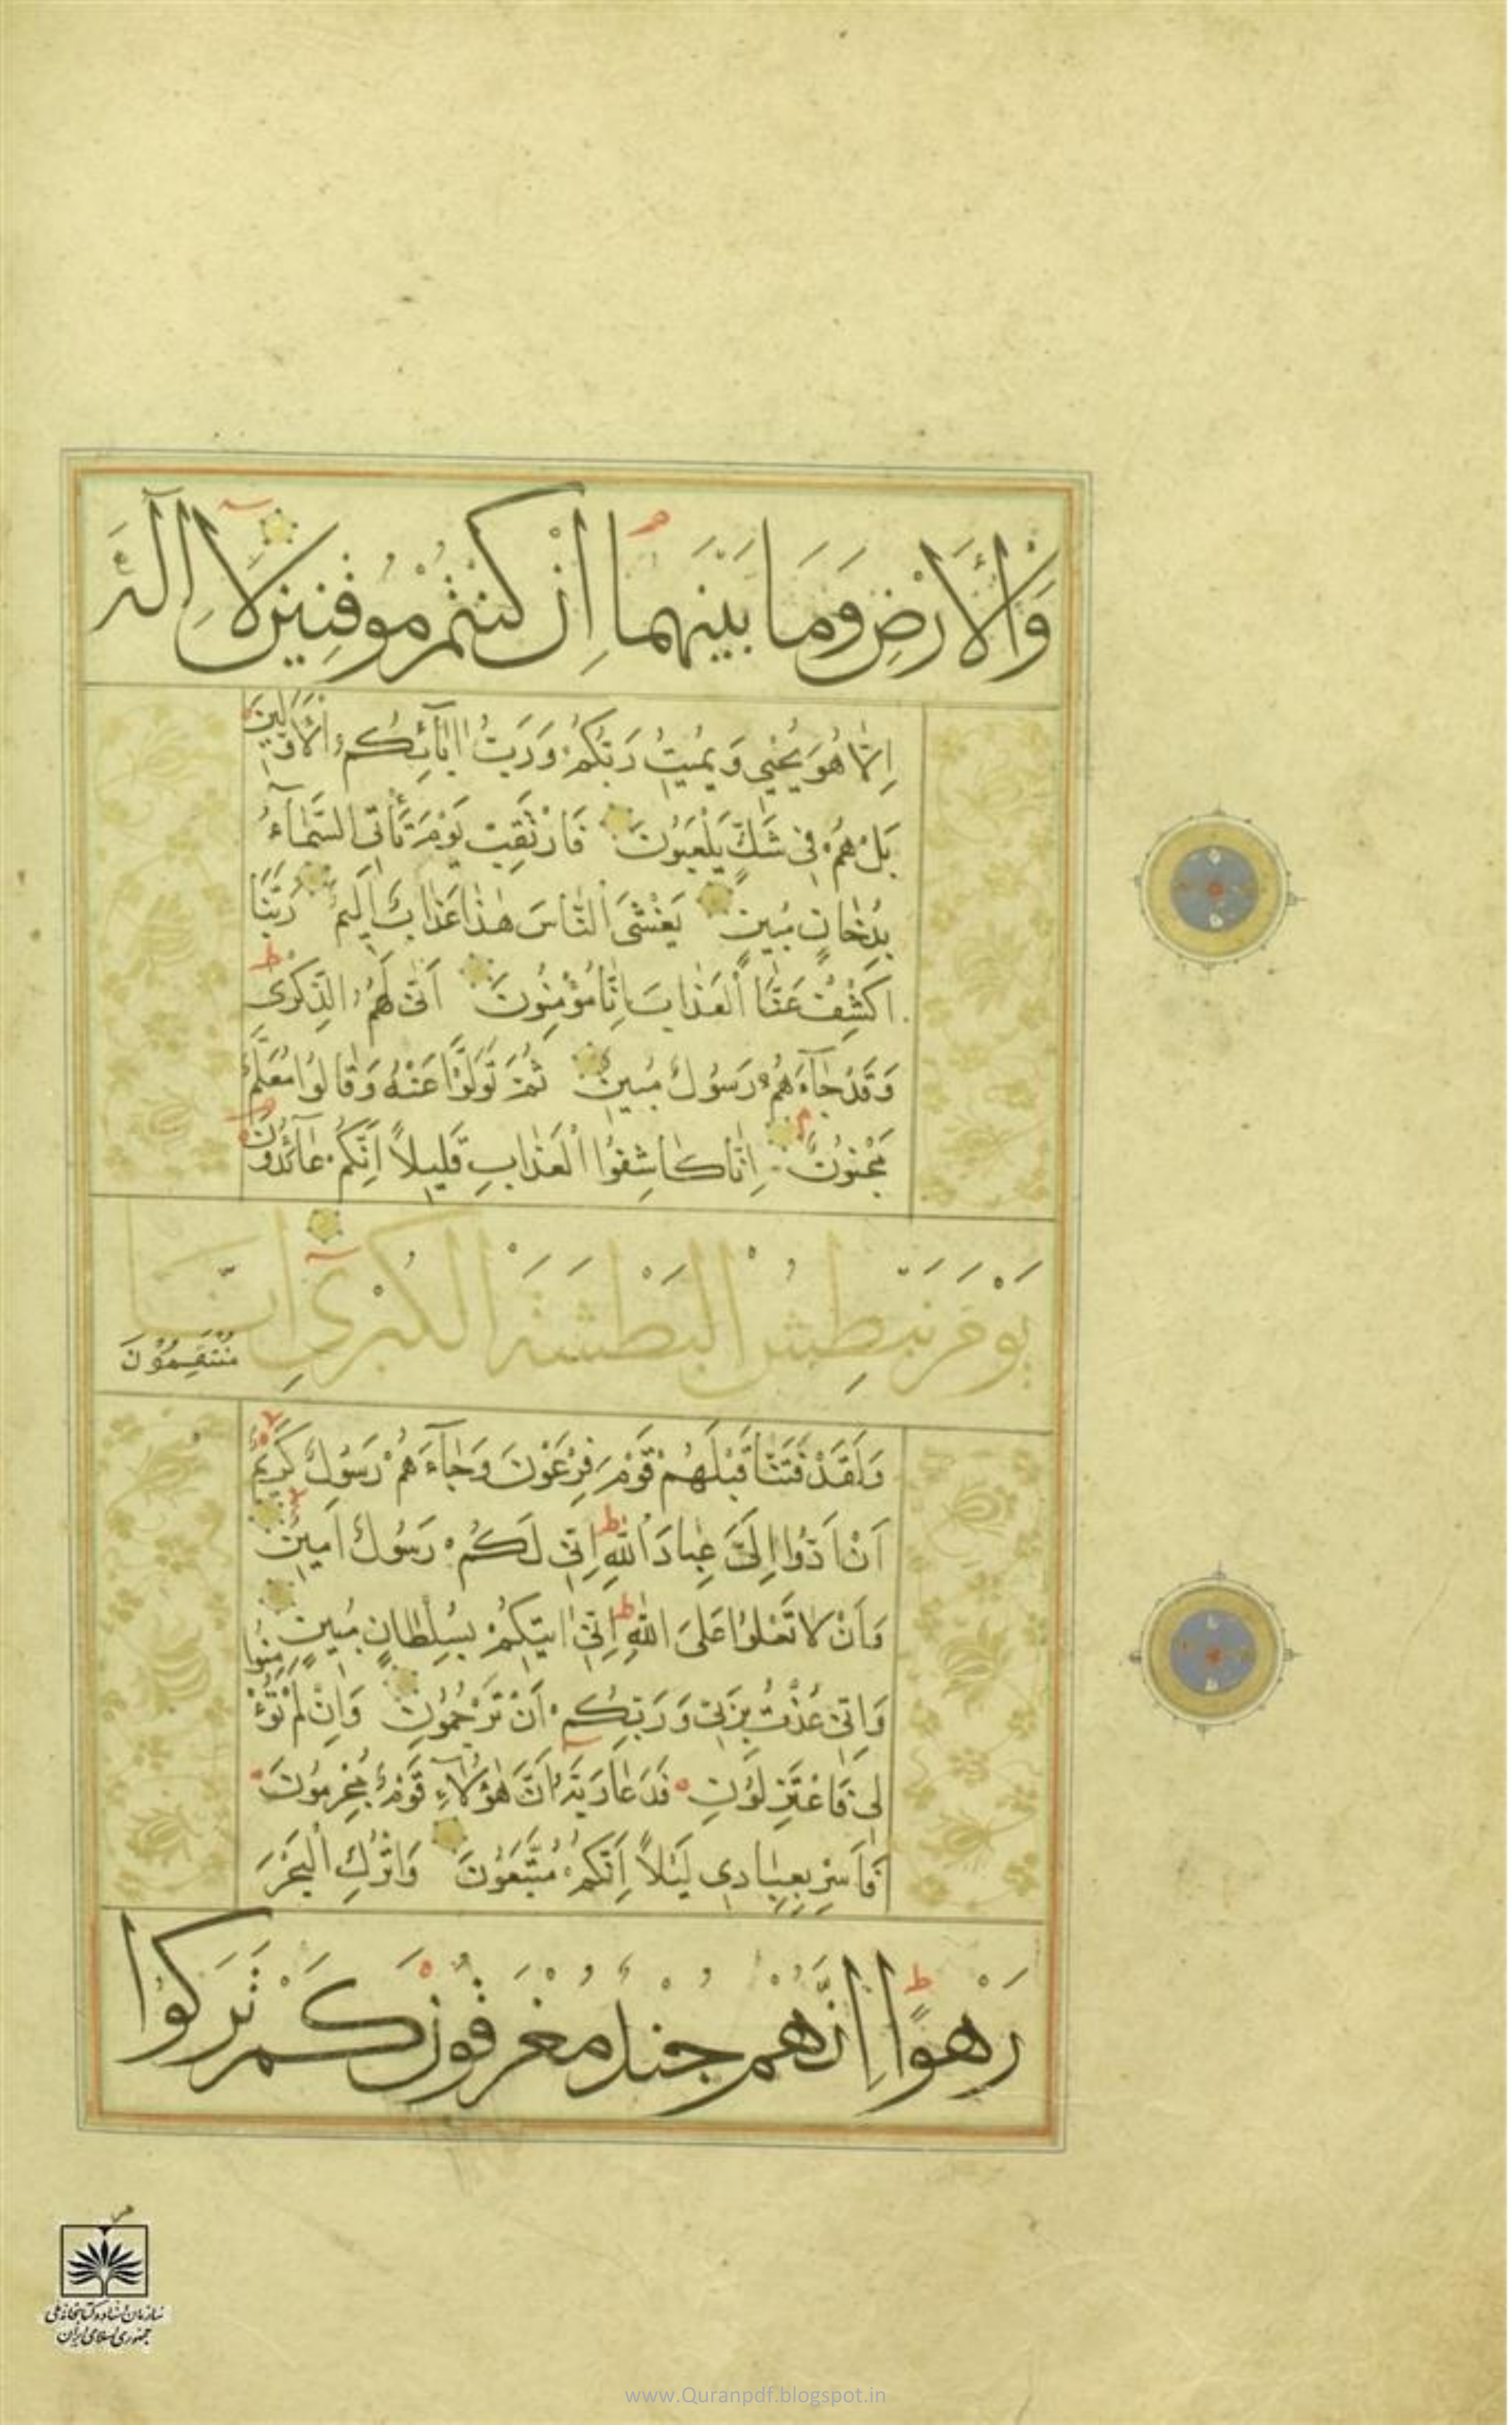 وَالْأَرْضِ وَمَا بَيْنَهُمَا إِنْ كُنْتُمْ مُوقِنِينَ لَا إِلٰهَ
اِلَّا هُوَ يُحْيِي وَيُمِيتُ رَبُّكُمْ وَرَبُّ اٰبَائِكُمُ الْاَوَّلِينَ
بَلْ هُمْ فِي شَكٍّ يَلْعَبُونَ فَارْتَقِبْ يَوْمَ تَأْتِي السَّمَآءُ
بِدُخَانٍ مُبِينٍ يَغْشَى النَّاسَ هٰذَا عَذَابٌ اَلِيمٌ رَبَّنَا
اكْشِفْ عَنَّا الْعَذَابَ اِنَّا مُؤْمِنُونَ اَنّٰى لَهُمُ الذِّكْرٰى
وَقَدْ جَآءَهُمْ رَسُولٌ مُبِينٌ ثُمَّ تَوَلَّوْا عَنْهُ وَقَالُوا مُعَلَّمٌ
مَجْنُونٌ اِنَّا كَاشِفُوا الْعَذَابِ قَلِيلاً اِنَّكُمْ عَآئِدُونَ
يَوْمَ نَبْطِشُ الْبَطْشَةَ الْكُبْرٰى اِنَّا
مُنْتَقِمُوْنَ
وَلَقَدْ فَتَنَّا قَبْلَهُمْ قَوْمَ فِرْعَوْنَ وَجَآءَهُمْ رَسُولٌ كَرِيمٌ
اَنْ اَدُّوا اِلَيَّ عِبَادَ اللّٰهِ اِنِّي لَكُمْ رَسُولٌ اَمِينٌ
وَاَنْ لَا تَعْلُوا عَلَى اللّٰهِ اِنِّي اٰتِيكُمْ بِسُلْطَانٍ مُبِينٍ
وَاِنِّي عُذْتُ بِرَبِّي وَرَبِّكُمْ اَنْ تَرْجُمُونِ وَاِنْ لَمْ تُؤْمِنُوا
لِي فَاعْتَزِلُونِ فَدَعَا رَبَّهُ اَنَّ هٰؤُلَآءِ قَوْمٌ مُجْرِمُونَ
فَاَسْرِ بِعِبَادِي لَيْلاً اِنَّكُمْ مُتَّبَعُونَ وَاتْرُكِ الْبَحْرَ
رَهْوًا اِنَّهُمْ جُنْدٌ مُغْرَقُونَ كَمْ تَرَكُوا
سازمان اسناد و کتابخانه ملی
جمهوری اسلامی ایران
www.Quranpdf.blogspot.in